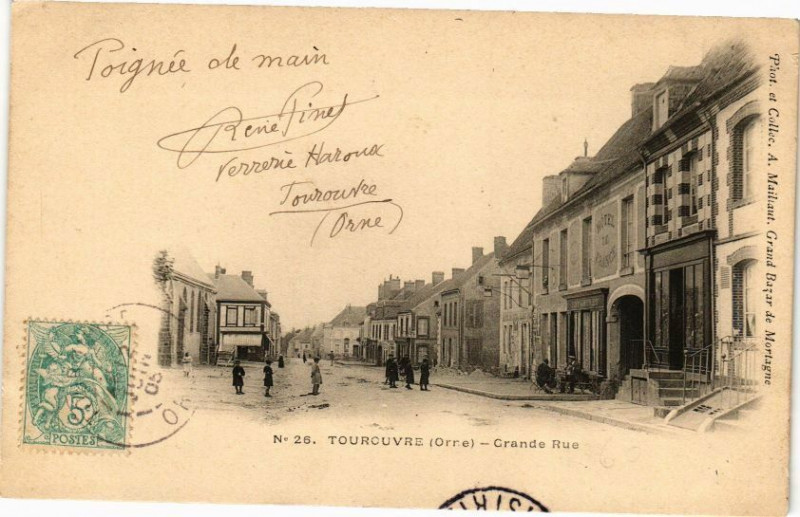 Poignée de main
René Pinet
Verrerie Haroux
Tourouvre
(Orne)
HÔTEL
DE
FRANCE
Phot. et Collec. A. Mailhaut, Grand Bazar de Mortagne
JUIN
05
5c
POSTES
Nº 26. TOUROUVRE (Orne) – Grande Rue